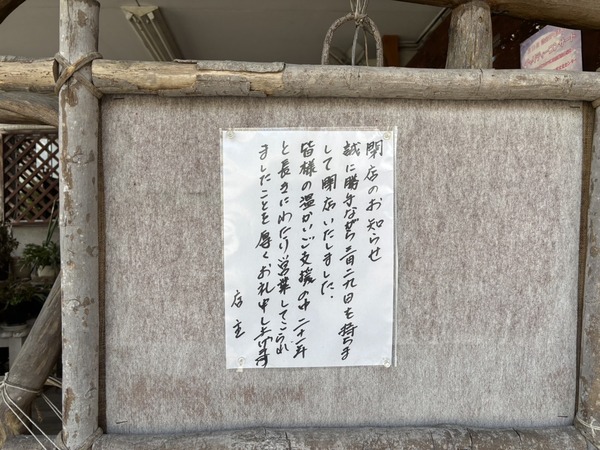 閉店のお知らせ
誠に勝手ながら三月二九日を持ちま
して閉店いたしました.
皆様の温かいご支援の中二十一年
と長きにわたり営業してこられ
ましたことを厚くお礼申し上げます
店主